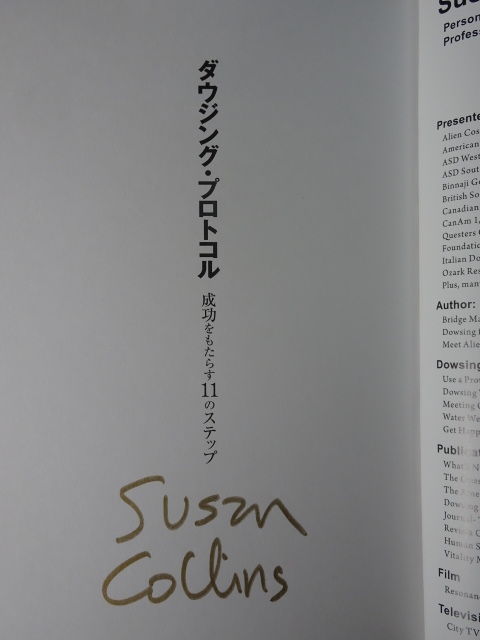 ダウジング・プロトコル
成功をもたらす11のステップ
Susan
Collins
Person
Profess
Presente
Alien Cos
American
ASD West
ASD Sout
Binnaji G
British So
Canadian
CanAm 1,
Questers
Foundatio
Italian Do
Ozark Res
Plus, man
Author:
Bridge Ma
Dowsing
Meet Alie
Dowsing
Use a Pro
Dowsing
Meeting
Water We
Get Happ
Publicat
What's N
The
The
Journal-
Human S
Vitality M
Film
Resonanc
Televisi
City TV